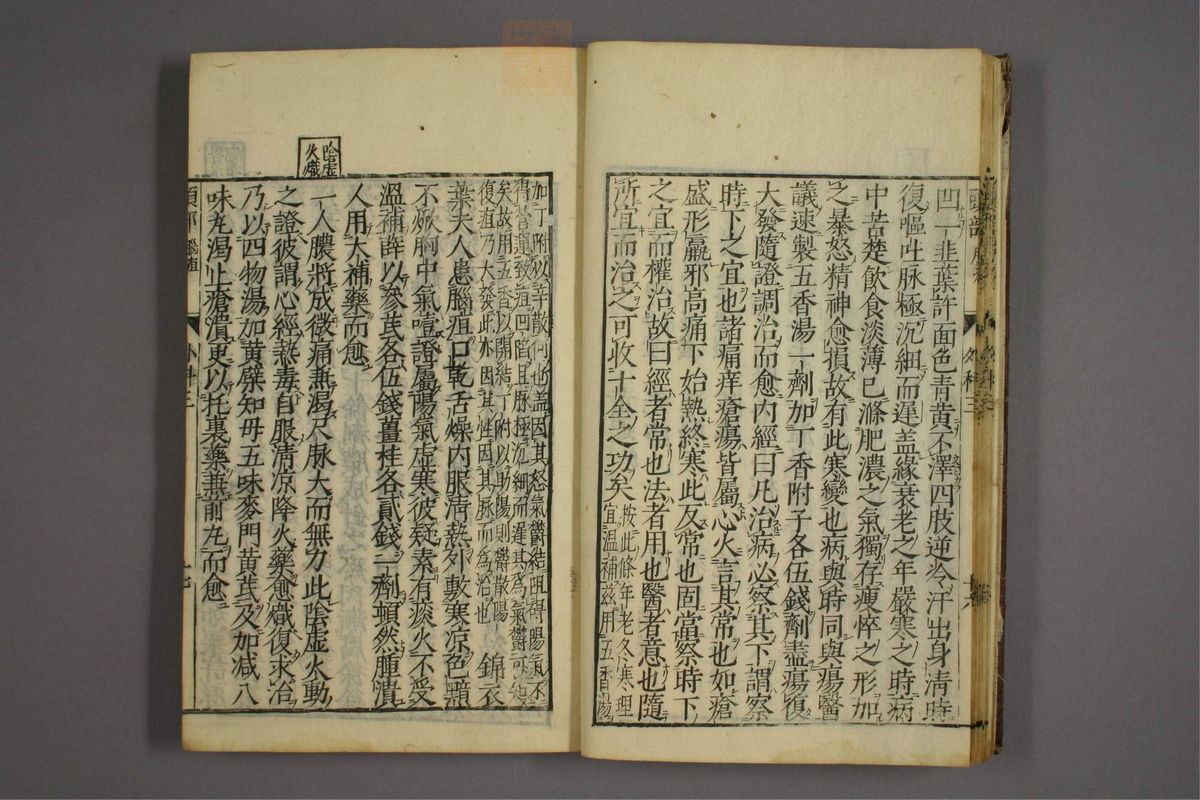 凹一韭葉許面色青黃不澤四肢逆冷汗出身清時
復嘔吐脉極沉細而遲盖緣衰老之年嚴寒之時病
中苦楚飲食淡薄已滌肥濃之氣獨存痩悴之形加
之暴怒精神愈損故有此寒變也病與時同與瘍醫
議速製五香湯一劑加丁香附子各伍錢劑盡瘍復
大發隨證調治而愈内經曰凡治病必察其下謂察
時下之宜也諸痛痒瘡瘍皆屬心火言其常也如瘡
盛形羸邪高痛下始熱終寒此反常也固當察時下
之宜而權治故曰經者常也法者用也醫者意也隨
所宜而治之可收十全之功矣按此條年老冬寒理
宜温補兹用五香湯
加丁附以辛散何也盖因其怒氣欝結阻碍陽氣不
得營運致疽凹陷且脉極沉細而遲其爲氣欝可知
矣故用五香以開結丁附以助陽則欝散陽
復疽乃大發此亦因其性因其脉而爲治也
錦衣
葉夫人患腦疽口乾舌燥内服清熱外敷寒凉色黯
不焮胸中氣噎證屬陽氣虚寒彼疑素有痰火不受
温補薛以參芪各伍錢薑桂各貳錢一劑頓然腫潰
又用大補藥而愈
陰虚
火熾
一人膿將成微痛兼渴尺脉大而無力此陰虚火動
之證彼謂心經熱毒自服清凉降火藥愈熾復求治
乃以四物湯加黃蘗知母五味麥門黃芪及加减八
味丸渴止瘡潰更以托裏藥兼前丸而愈
外科三